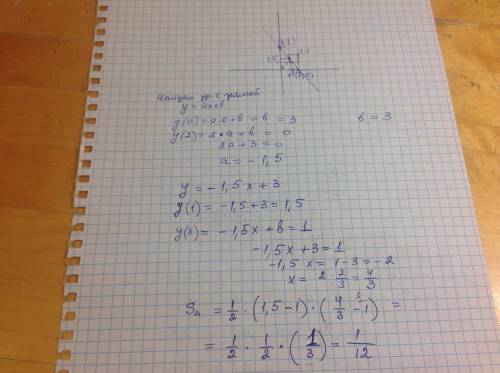 1,5
Найдем ур-е прямой
y = ax+b
y(0) = a·0 + b = b = 3     b = 3
y(2) = 2·a + b = 0
2a + 3 = 0
a = -1,5
y = -1,5x + 3
y(1) = -1,5 + 3 = 1,5
y(x) = -1,5x + b = 1
-1,5x + 3 = 1
-1,5 x = 1 - 3 = -2
x = 2 · 2/3 = 4/3
S△ = 1/2 · (1,5 - 1) · (4/3 - 1) =
= 1/2 · 1/2 · (1/3) = 1/12